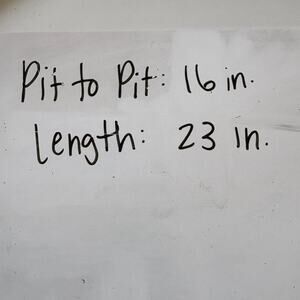 Pit to Pit: 16 in.
Length: 23 in.